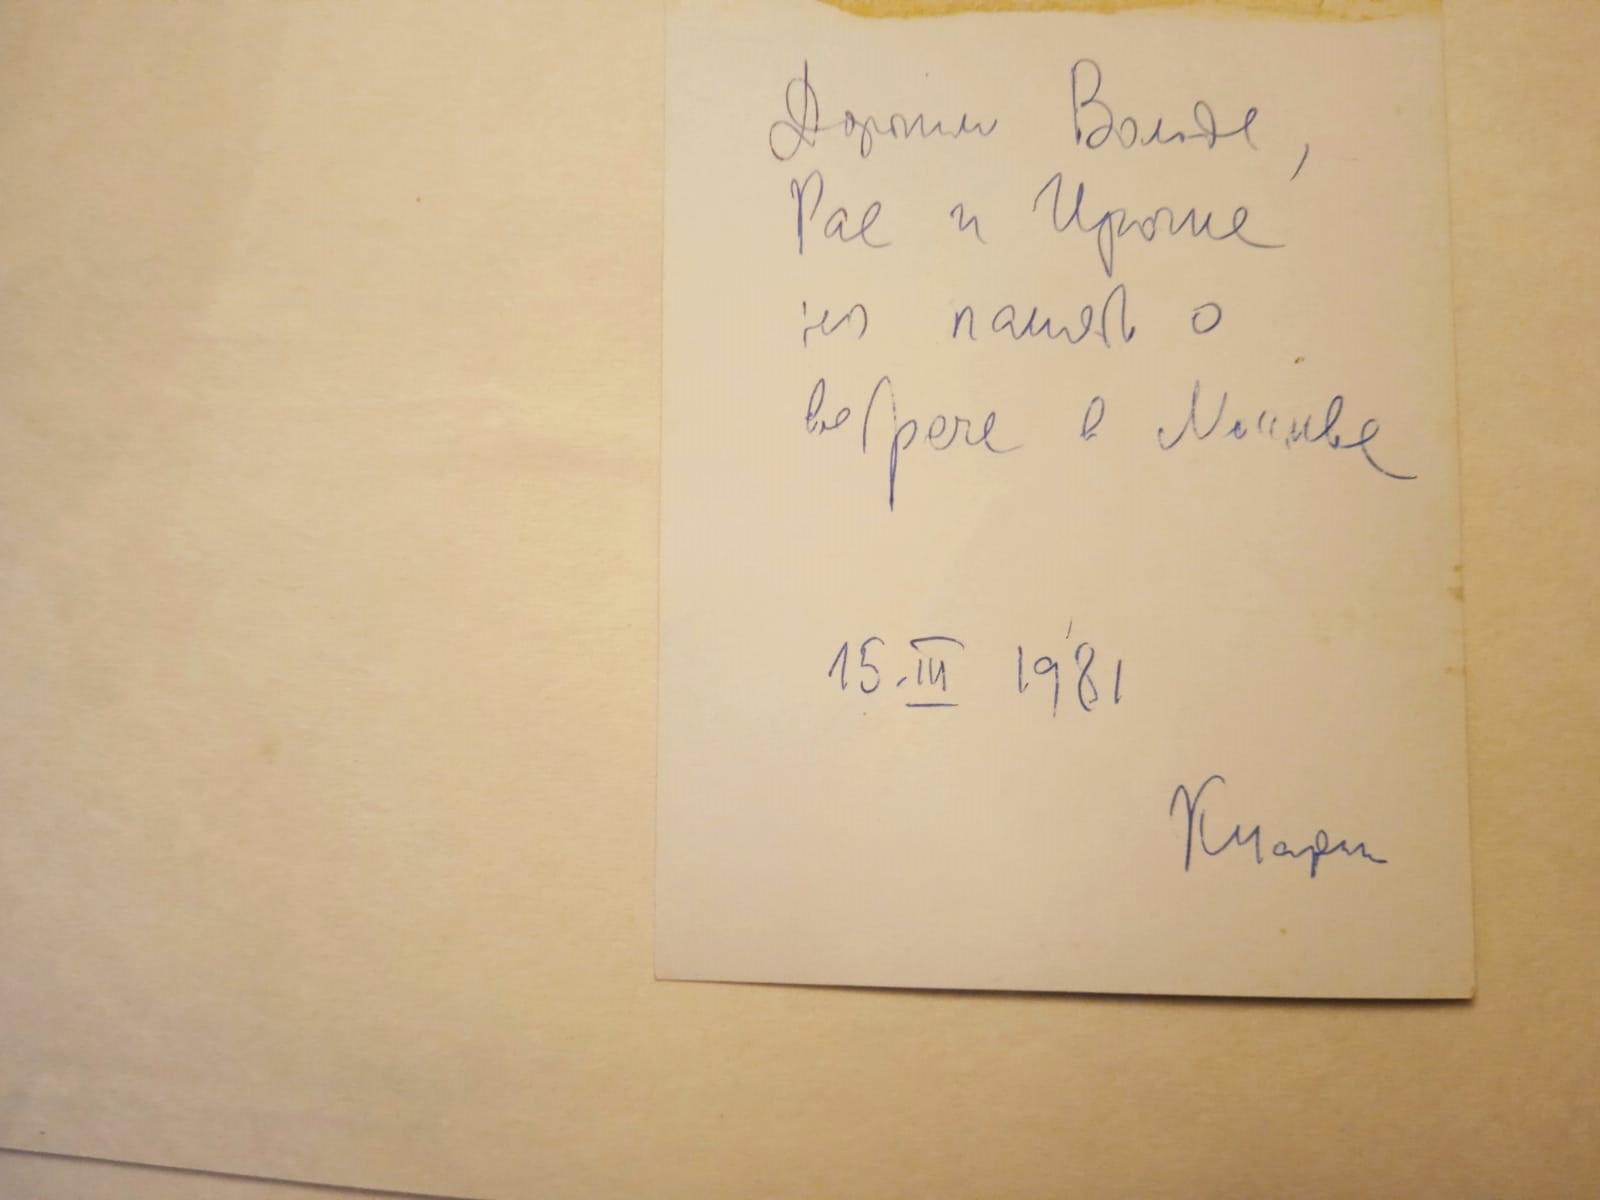 Дорогим Володе,
Рае и Ирочке
на память о
встрече в Москве
15.III 1981